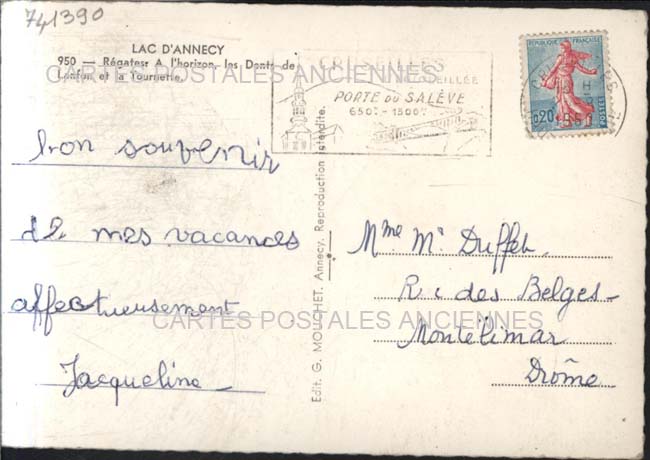 741390
LAC D'ANNECY
950 — Régates: A l'horizon, les Dents de
Lanfon et la Tournette.
CARTES POSTALES ANCIENNES
PORTE DU SALÈVE
650m - 1300m
REPUBLIQUE FRANÇAISE
0,20
POSTES
1960
bon souvenir
de mes vacances
affectueusement
Jacqueline
Edit. G. MOUCHET, Annecy. Reproduction interdite.
Mme Mi Duffet
R. des Belges
Montélimar
Drôme
CARTES POSTALES ANCIENNES